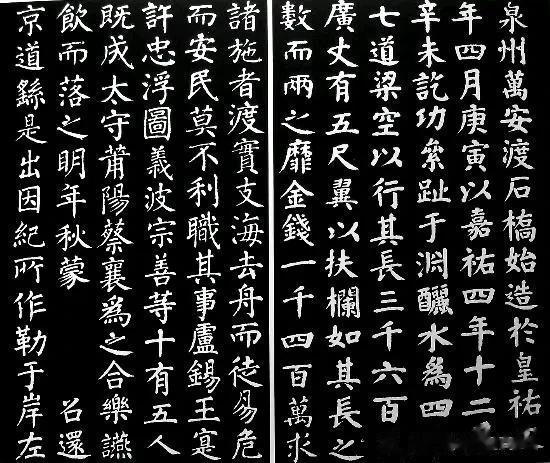 泉州萬安渡石橋始造於皇祐
年四月庚寅以嘉祐四年十二
辛未訖功絫趾于渊釃水為四
七道梁空以行其長三千六百
廣丈有五尺翼以扶欄如其長之
數而兩之靡金錢一千四百萬求
諸施者渡實支海去舟而徒易危
而安民莫不利職其事盧錫王寔
許忠浮圖義波宗善等十有五人
既成太守莆陽蔡襄爲之合樂讌
飲而落之明年秋蒙 召還
京道繇是出因紀所作勒于岸左